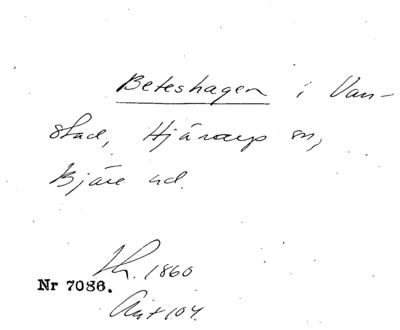 Beteshagen i Van-
stad, Hjärnarp sn,
Bjäre hd.
1860
Nr 7086.
104.